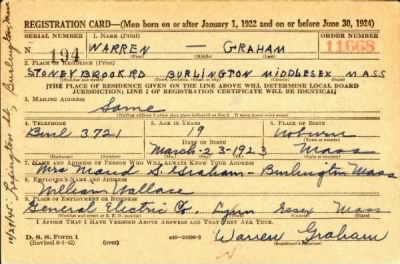 REGISTRATION CARD—(Men born on or after January 1, 1922 and on or before June 30, 1924)
SERIAL NUMBER 1. NAME (Print) ORDER NUMBER
N 194 WARREN — GRAHAM 11668
2. PLACE OF RESIDENCE (Print)
STONEY BROOK RD BURLINGTON MIDDLESEX MASS
[THE PLACE OF RESIDENCE GIVEN ON THE LINE ABOVE WILL DETERMINE LOCAL BOARD
JURISDICTION; LINE 2 OF REGISTRATION CERTIFICATE WILL BE IDENTICAL]
3. MAILING ADDRESS
Same
4. TELEPHONE 5. AGE IN YEARS 6. PLACE OF BIRTH
Burl 3721 19 Woburn
DATE OF BIRTH
March-23-1923 Mass
7. NAME AND ADDRESS OF PERSON WHO WILL ALWAYS KNOW YOUR ADDRESS
Mrs Maud S. Graham - Burlington Mass
8. EMPLOYER'S NAME AND ADDRESS
William Wallace
9. PLACE OF EMPLOYMENT OR BUSINESS
General Electric Co, Lynn Essex Mass
I AFFIRM THAT I HAVE VERIFIED ABOVE ANSWERS AND THAT THEY ARE TRUE.
D. S. S. Form 1
(Revised 6-1-42) (over)
Warren Graham
Burlington, Mass